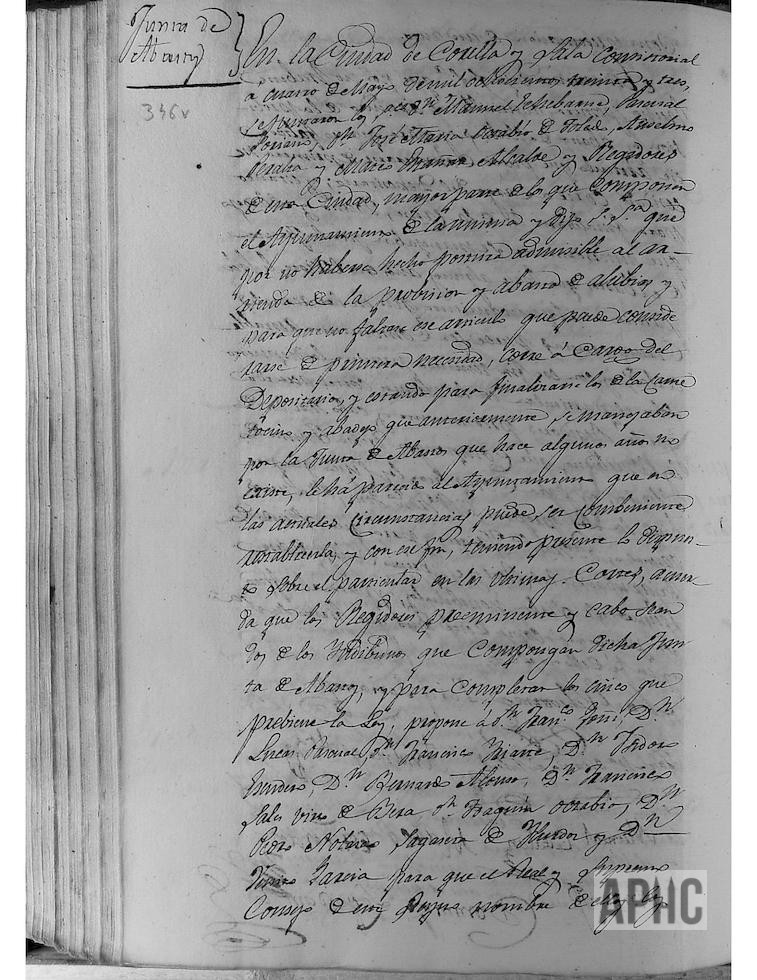 Junta de
Abastos
346v
En la Ciudad de Corella y Sala Consistorial
a cuatro de Mayo de mil ochocientos treinta y tres,
se juntaron los ses Dn Manuel
Dn José Maria Octabio de Toledo, Anselmo
Peralta y Alcalde y Regidores
de esta Ciudad, mayor parte de los que componen
el Ayuntamiento de la misma y dijo S. Sa que
por no haberse hecho postura admisible al ar-
riendo de la probision y abasto de alubias y
para que no faltase ese articulo que puede conside
rarse de primera necesidad, corre á Cargo del
Depositario, y estando para finalizarse los de la Carne
tocino y abadejo que anteriormente se manejaban
por la Junta de Abastos que hace algunos años no
existe, le há parecido al Ayuntamiento que en
las actuales Circunstancias puede ser combeniente
restablecerla, y con ese fin, teniendo presente lo dispues-
to sobre el particular en las ultimas Cortes, acuer-
da que los Regidores preeminente y cabo sean
dos de los Yndibiduos que Compongan dicha Jun
ta de Abastos, y para Completar los cinco que
prebiene la Ley, propone á Dn Franco Goñi, Dn
Lucas Pascual Dn Francisco Yriarte, Dn Ysidoro
Dn Bernardo Alonso, Dn Francisco
Sales Virto de Bera Dn Joaquin Octabio, Dn
Pedro Notario, Sagasta de Ylurdoz y Dn
Garcia para que el Real y Supremo
Consejo de este Reyno nombre de ellos los
APHC